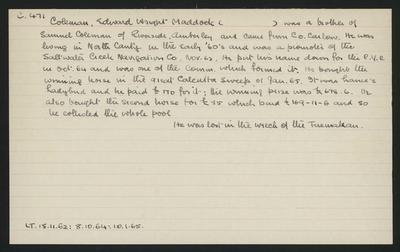 C.471
Coleman, Edward Wright Maddock (          ) was a brother of
Samuel Coleman of Riverside, Amberley and came from Co. Carlow. He was
living in North Canty in the early '60's and was a promoter of the
Saltwater Creek Navigation Co. Nov. 62. He put his name down for the R.V.C
in Oct. 64 and was one of the Comm. which formed it. He bought the
winning horse in the great Calcutta Sweep of Jan. 65. It was Lance's
Ladybird and he paid £170 for it; the winning prize was £678.6. He
also bought the second horse for £75 which paid £169-11-6 and so
he collected the whole pool
He was lost in the wreck of the Tararua.
LT. 15.11.62: 8.10.64: 10.1.65.